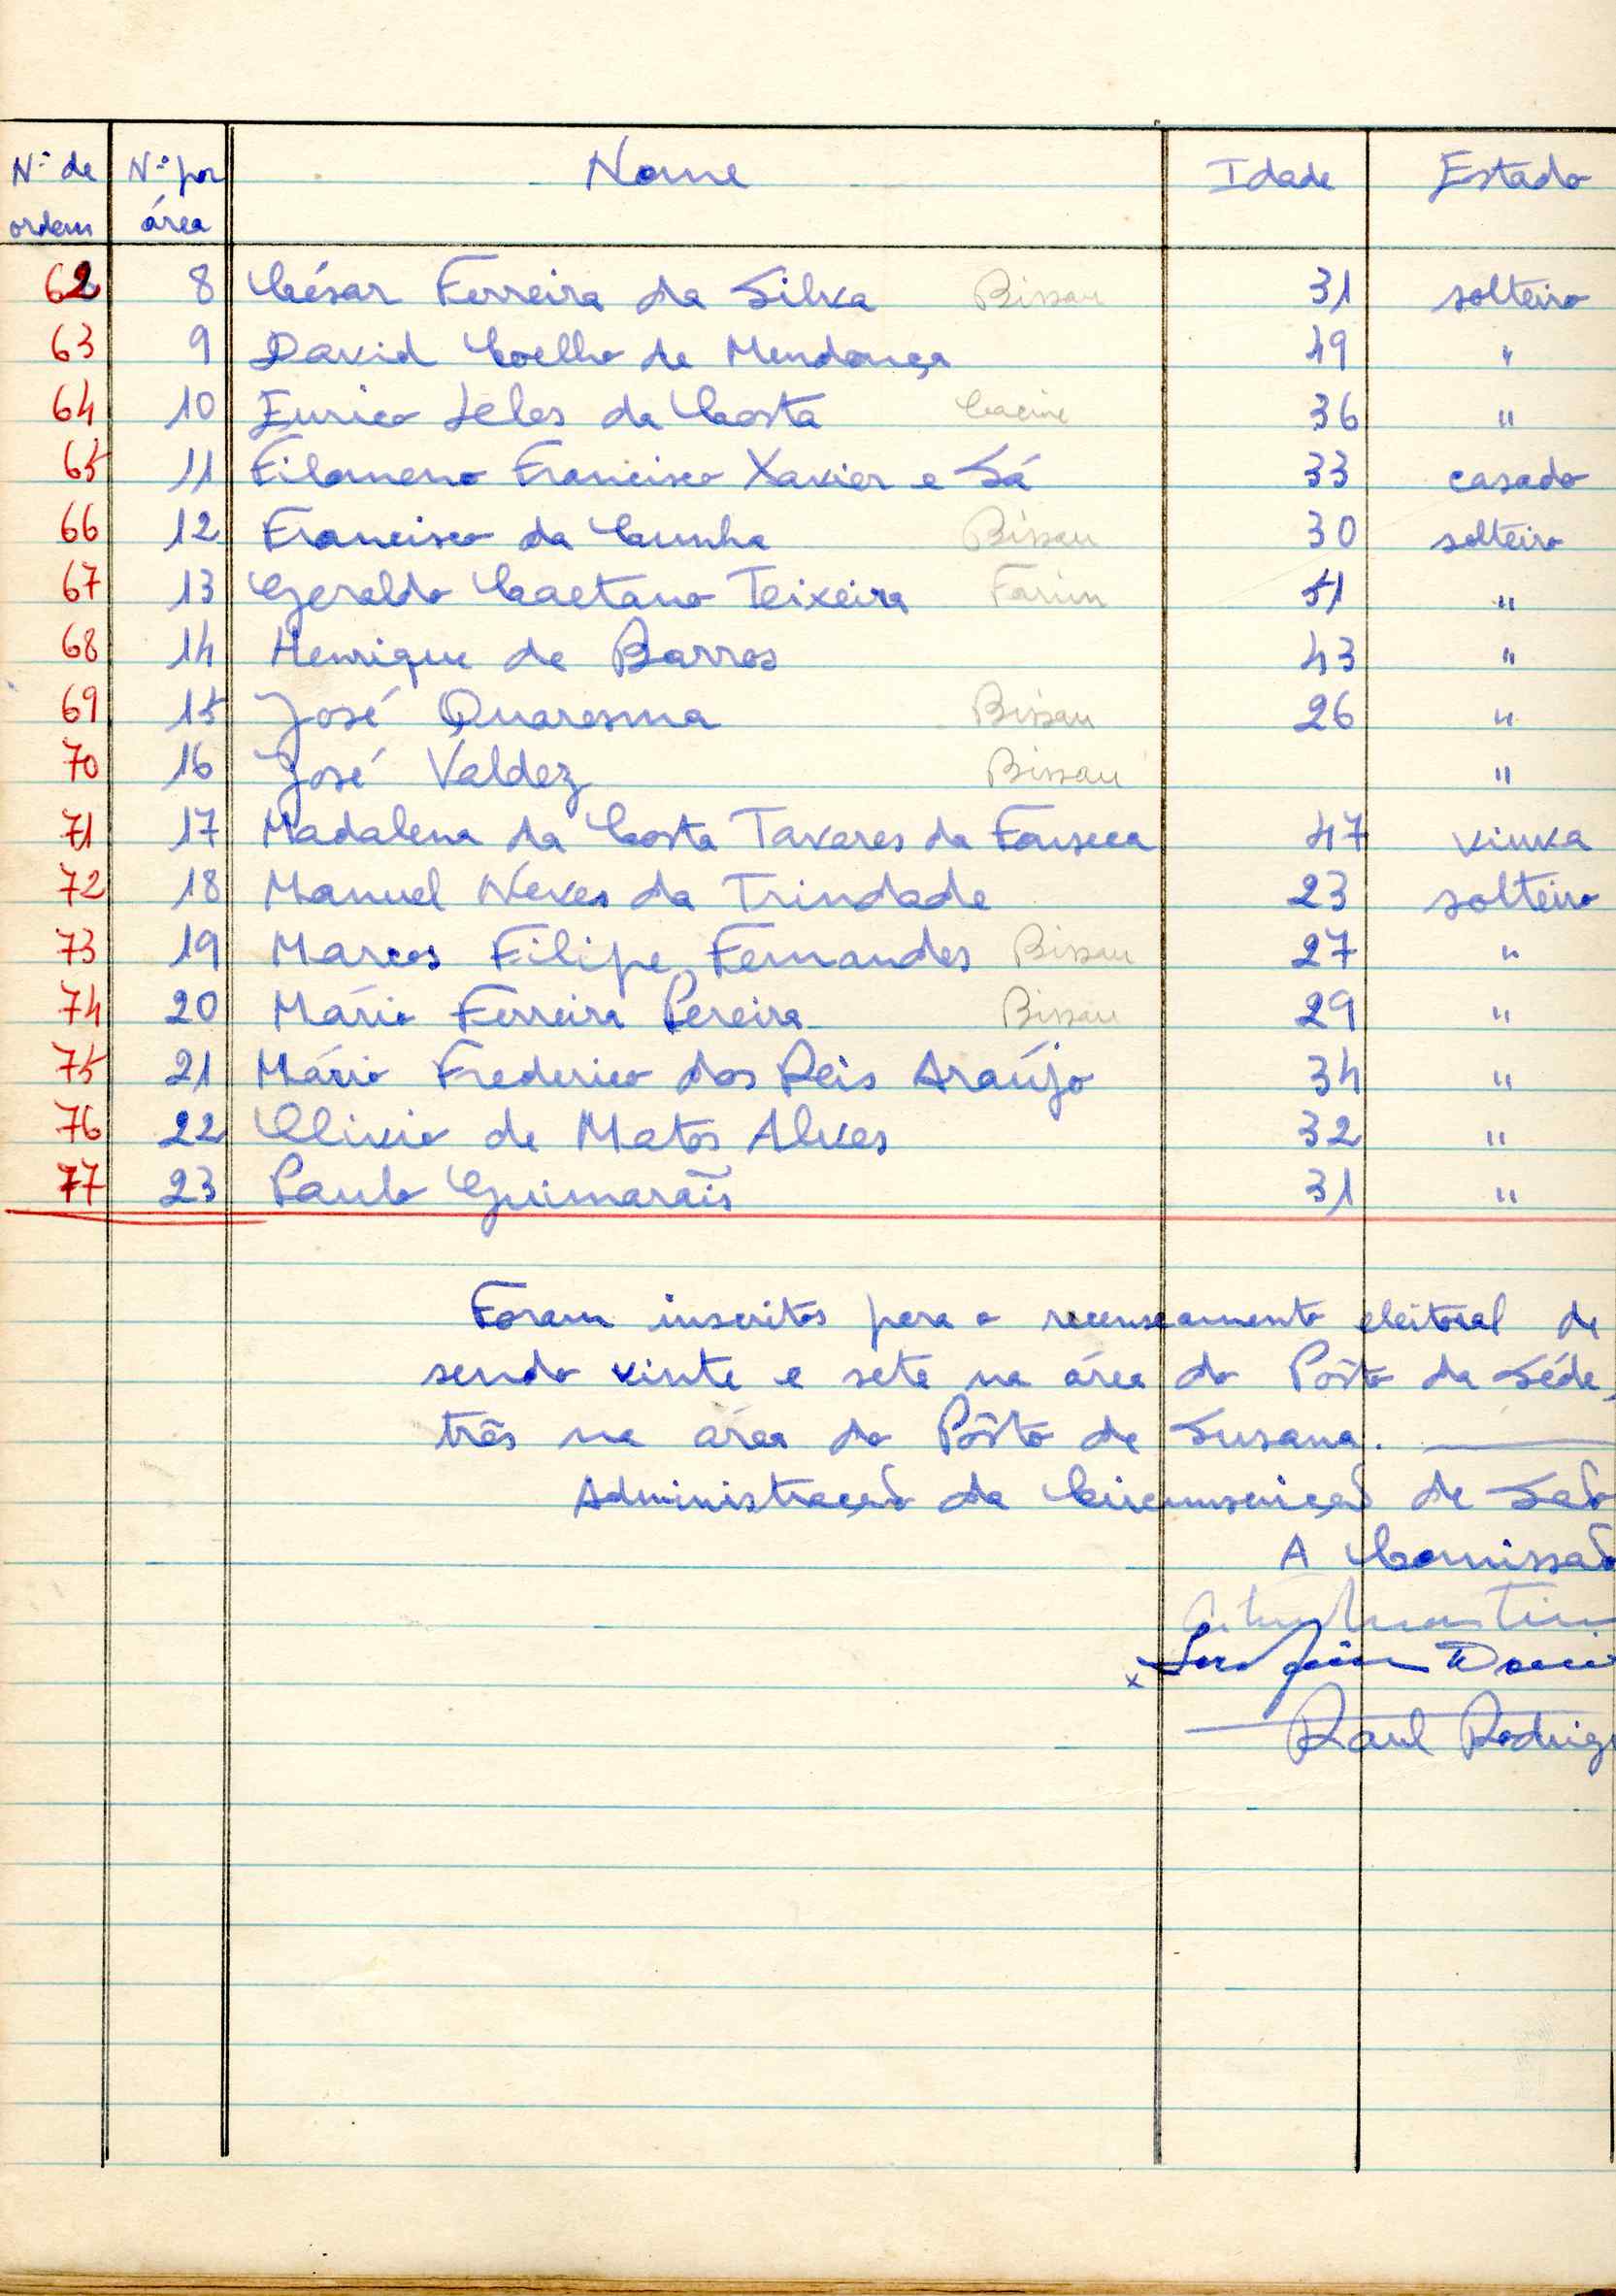 Nº de Nº por Nome Idade Estado
ordem área
62 8 César Ferreira da Silva Bissau 31 solteiro
63 9 David Coelho de Mendonça 49 "
64 10 Eurico Teles da Costa Cacine 36 "
65 11 Filomeno Francisco Xavier e Sá 33 casado
66 12 Francisco da Cunha Bissau 30 solteiro
67 13 Geraldo Caetano Teixeira Farim 51 "
68 14 Henrique de Barros 43 "
69 15 José Quaresma Bissau 26 "
70 16 José Valdez Bissau "
71 17 Madalena da Costa Tavares da Fonseca 47 viuva
72 18 Manuel Neves da Trindade 23 solteiro
73 19 Marcos Filipe Fernandes Bissau 27 "
74 20 Mário Ferreira Pereira Bissau 29 "
75 21 Mário Frederico dos Reis Araújo 34 "
76 22 Olivio de Matos Alves 32 "
77 23 Paulo Guimarãis 31 "
Foram inscritos para o recenseamento eleitoral de
sendo vinte e sete na área do Pôsto da Séde,
três na área do Pôsto de Susana.
Administração da Circunscrição de São
A Comissão
Raul Rodrig